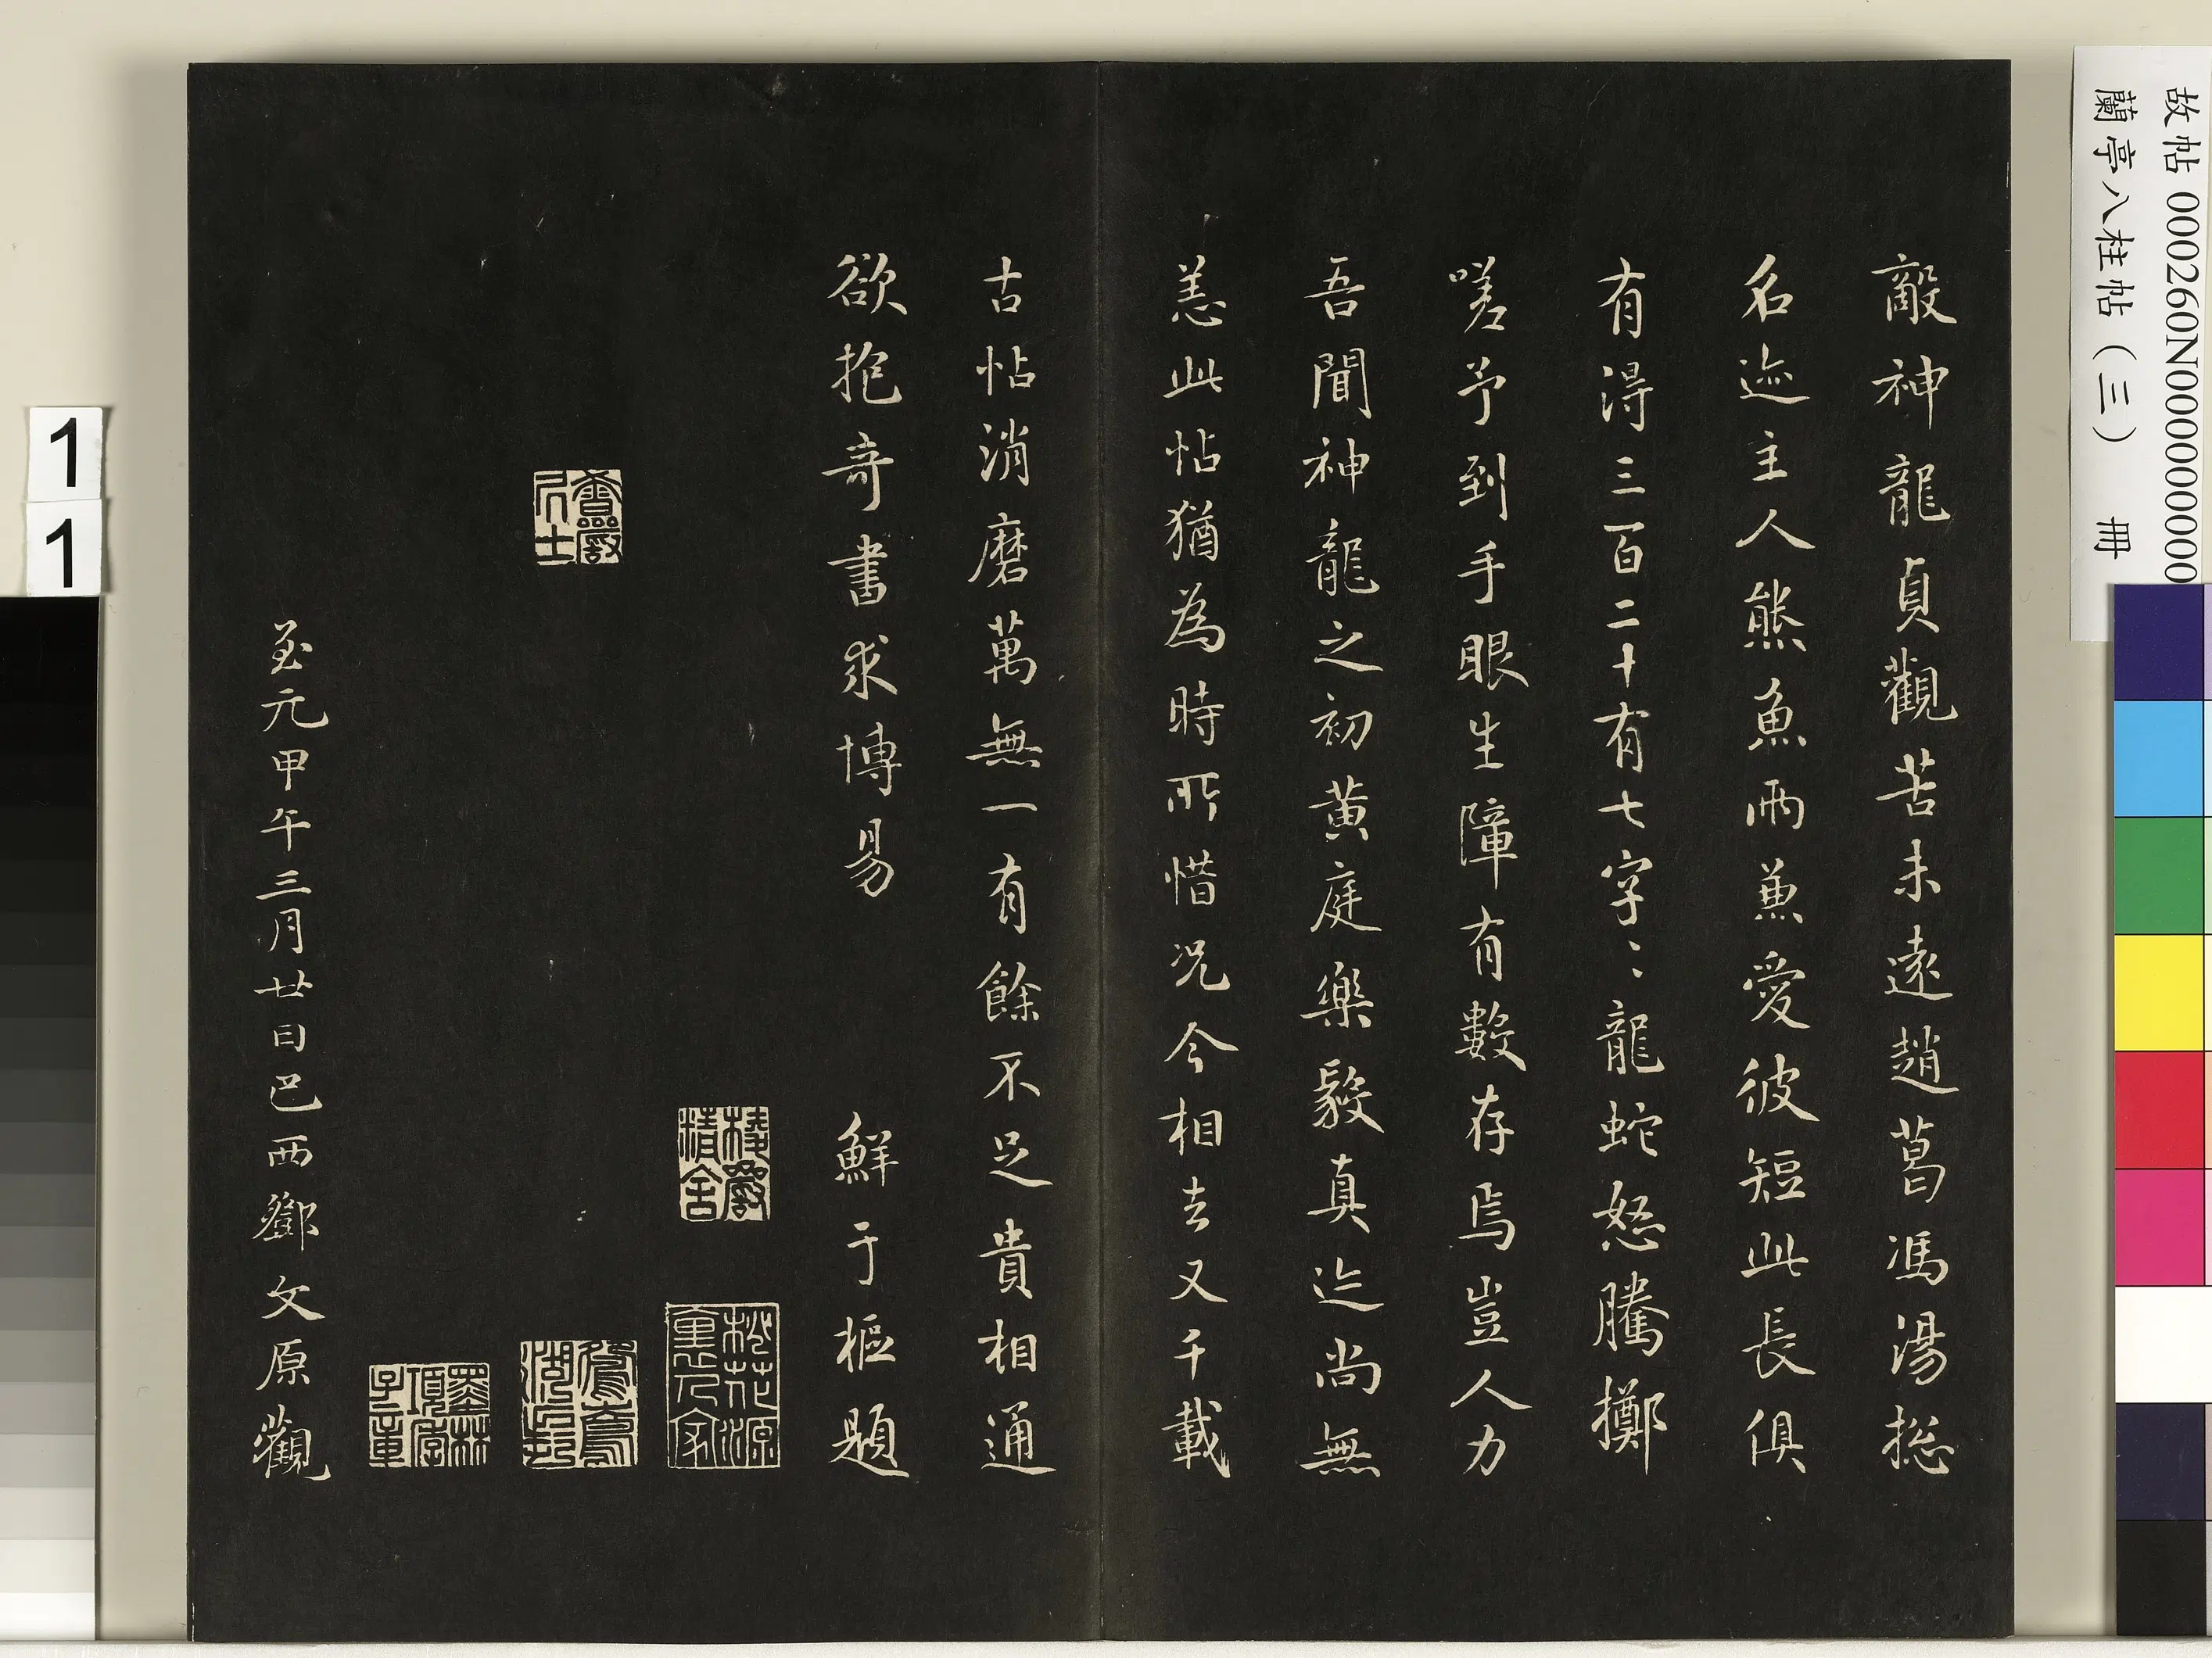 敵神龍貞觀苦未遠趙葛馮湯揔
名迹主人熊魚兩兼愛彼短此長俱
有淂三百二十有七字〻龍蛇怒騰擲
嗟予到手眼生障有數存焉豈人力
吾聞神龍之初黃庭樂毅真迄尚無
恙此帖猶為時所惜况今相去又千載
古帖消磨萬無一有餘不足貴相通
欲抱奇書求博易
鮮于樞題
至元甲午三月廿日巴西鄧文原觀
項墨林
子京
鴛鴦湖長
桃花源裏人家
故帖 000260N000000000
蘭亭八柱帖（三） 冊
1
1